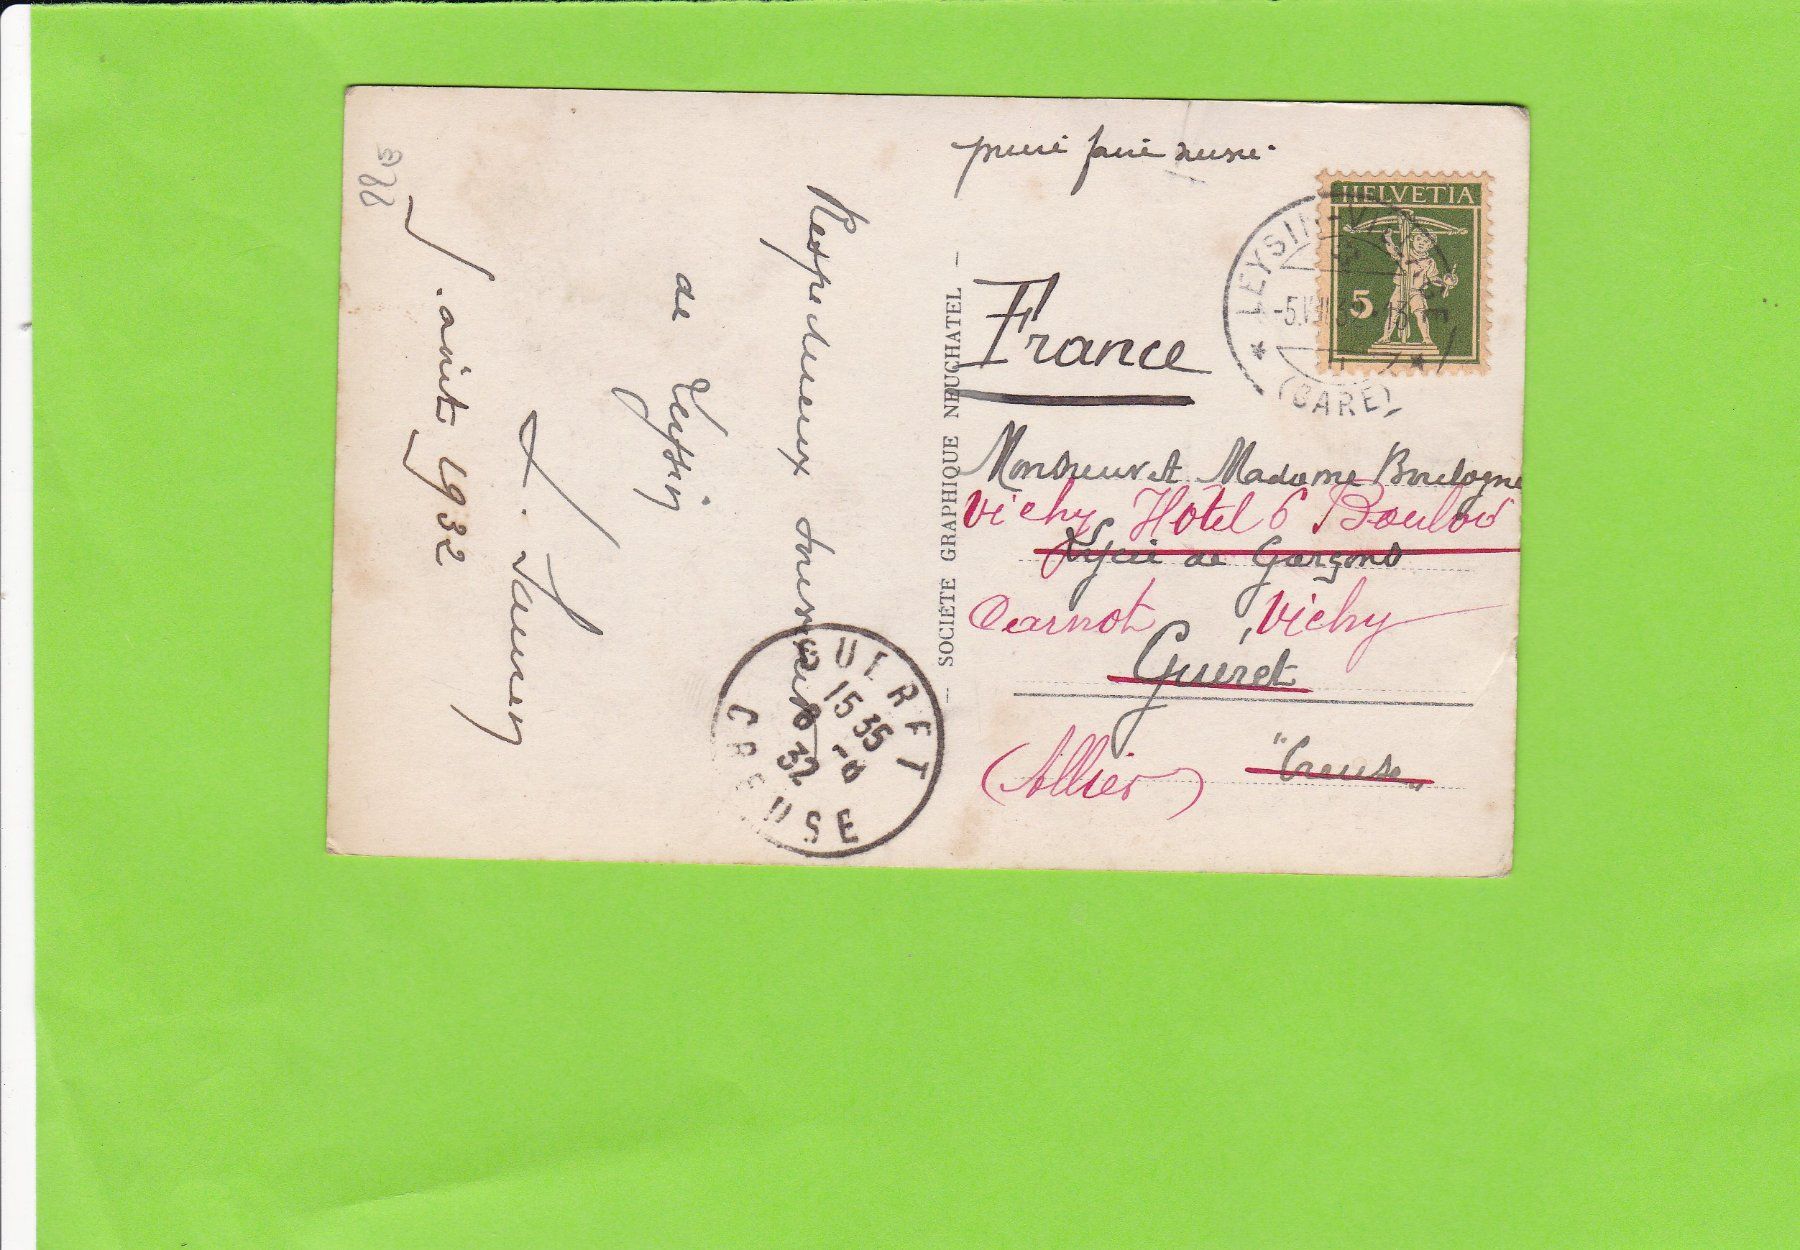 3122
Respectueux souvenir
de Leysin
5. août 1932
prière faire suivre.
HELVETIA
5
LEYSIN-VILLAGE
-5.VIII.32.-13
(GARE)
France
SOCIÉTÉ GRAPHIQUE NEUCHATEL
Monsieur et Madame Boulogne
Vichy Hôtel 6 Boulevd
Lycée de Garçons
Carnot Vichy
Guéret
(Allier) "Creuse"
GUERET
15 35
8-8
32
CREUSE